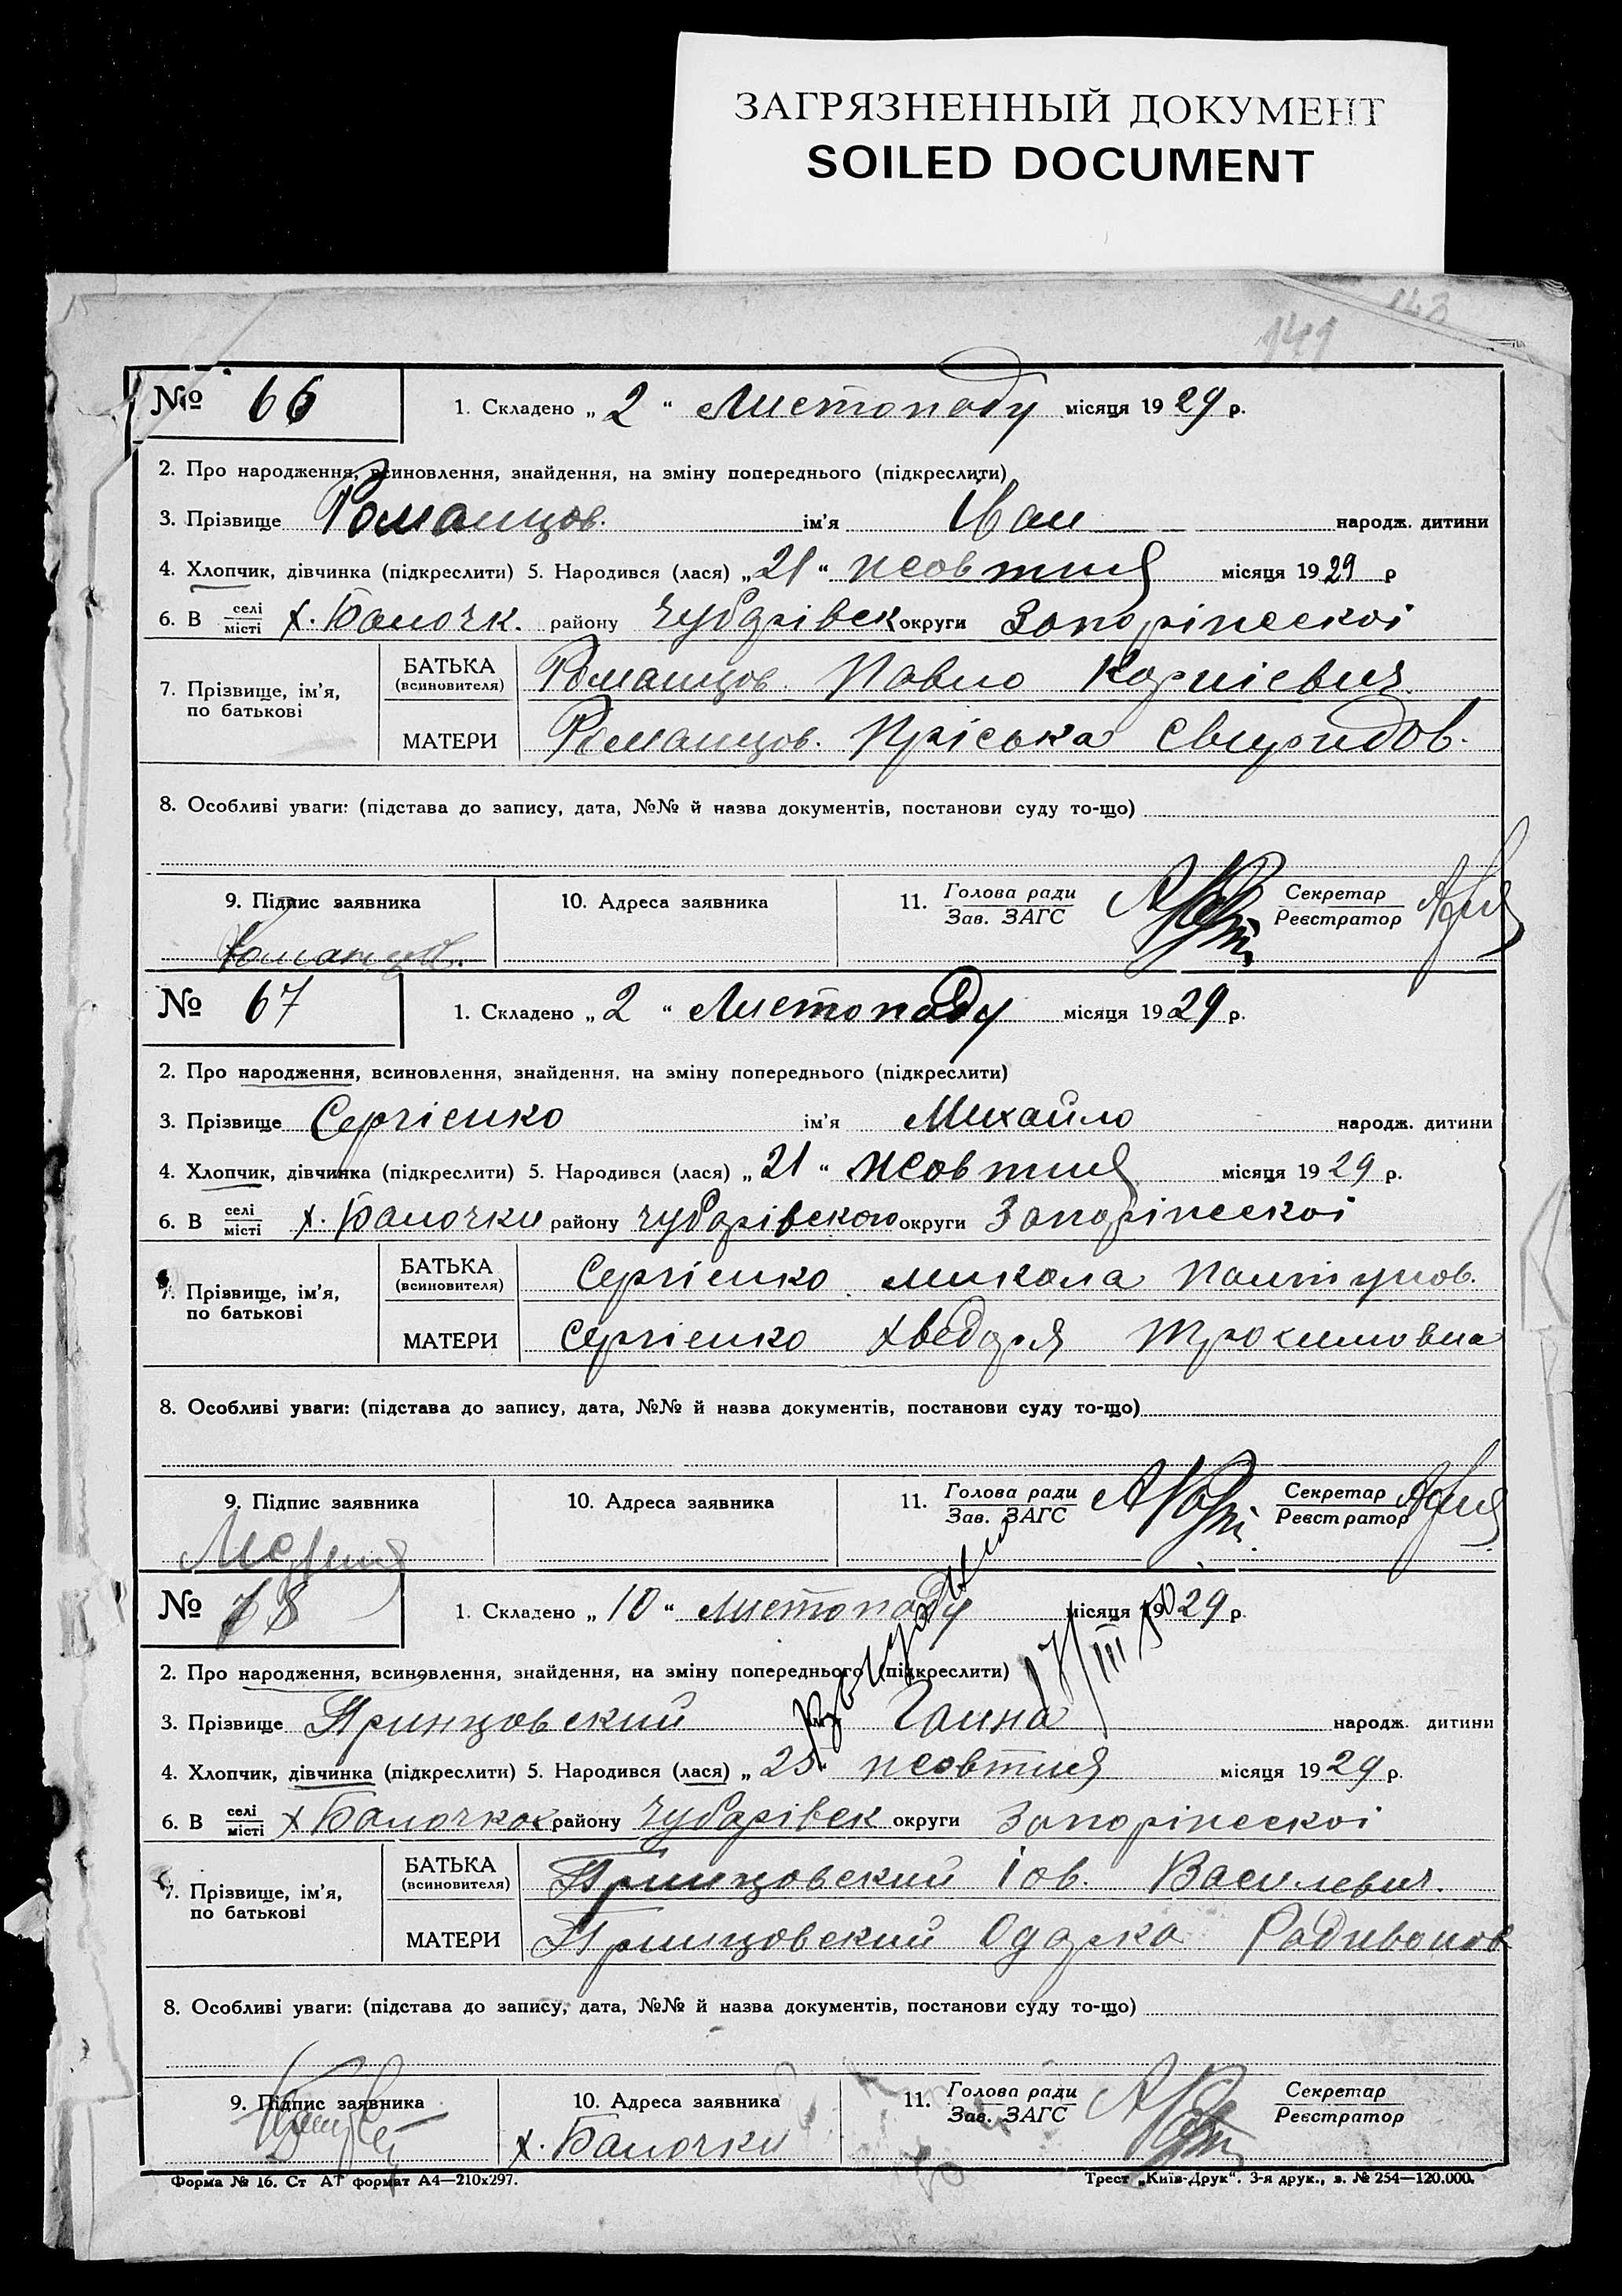 ЗАГРЯЗНЕННЫЙ ДОКУМЕНТ
SOILED DOCUMENT
143
141
№ 66
1. Складено „ 2 “ Листопаду місяця 1929 р.
2. Про народження, всиновлення, знайдення, на зміну попереднього (підкреслити)
3. Прізвище Романцов. ім'я Іван народж. дитини
4. Хлопчик, дівчинка (підкреслити) 5. Народився (лася) „ 21 “ жовтня місяця 1929 р
6. В селі/місті х. Балочк. району Чубарівск округи Запоріжскоі
7. Прізвище, ім'я, по батькові
БАТЬКА (всиновителя) Романцов. Павло Корнієвич.
МАТЕРИ Романцов. Пріська Свиридов.
8. Особливі уваги: (підстава до запису, дата, №№ й назва документів, постанови суду то-що)
9. Підпис заявника Романцов.
10. Адреса заявника
11. Голова ради/Зав. ЗАГС
Секретар/Реєстратор
№ 67
1. Складено „ 2 “ Листопаду місяця 1929 р.
2. Про народження, всиновлення, знайдення, на зміну попереднього (підкреслити)
3. Прізвище Сергієнко ім'я Михайло народж. дитини
4. Хлопчик, дівчинка (підкреслити) 5. Народився (лася) „ 21 “ жовтня місяця 1929 р.
6. В селі/місті х. Балочки району Чубарівского округи Запоріжскоі
7. Прізвище, ім'я, по батькові
БАТЬКА (всиновителя) Сергієнко Микола
МАТЕРИ Сергієнко Хведоря Трохимовна
8. Особливі уваги: (підстава до запису, дата, №№ й назва документів, постанови суду то-що)
9. Підпис заявника
10. Адреса заявника
11. Голова ради/Зав. ЗАГС
Секретар/Реєстратор
№ 68
1. Складено „ 10 “ листопаду місяця 1929 р.
17/III 50
2. Про народження, всиновлення, знайдення, на зміну попереднього (підкреслити)
3. Прізвище Принцовский ім'я Ганна народж. дитини
4. Хлопчик, дівчинка (підкреслити) 5. Народився (лася) „ 25 “ жовтня місяця 1929 р.
6. В селі/місті х Балочках району Чубарівск округи Запоріжскоі
7. Прізвище, ім'я, по батькові
БАТЬКА (всиновителя) Принцовский Іов. Василевич.
МАТЕРИ Принцовский Одарка Радивонов
8. Особливі уваги: (підстава до запису, дата, №№ й назва документів, постанови суду то-що)
9. Підпис заявника
10. Адреса заявника х. Балочки
11. Голова ради/Зав. ЗАГС
Секретар/Реєстратор
Форма № 16. Ст АТ формат А4—210х297.
Трест „Київ-Друк“. 3-я друк., з. № 254—120.000.